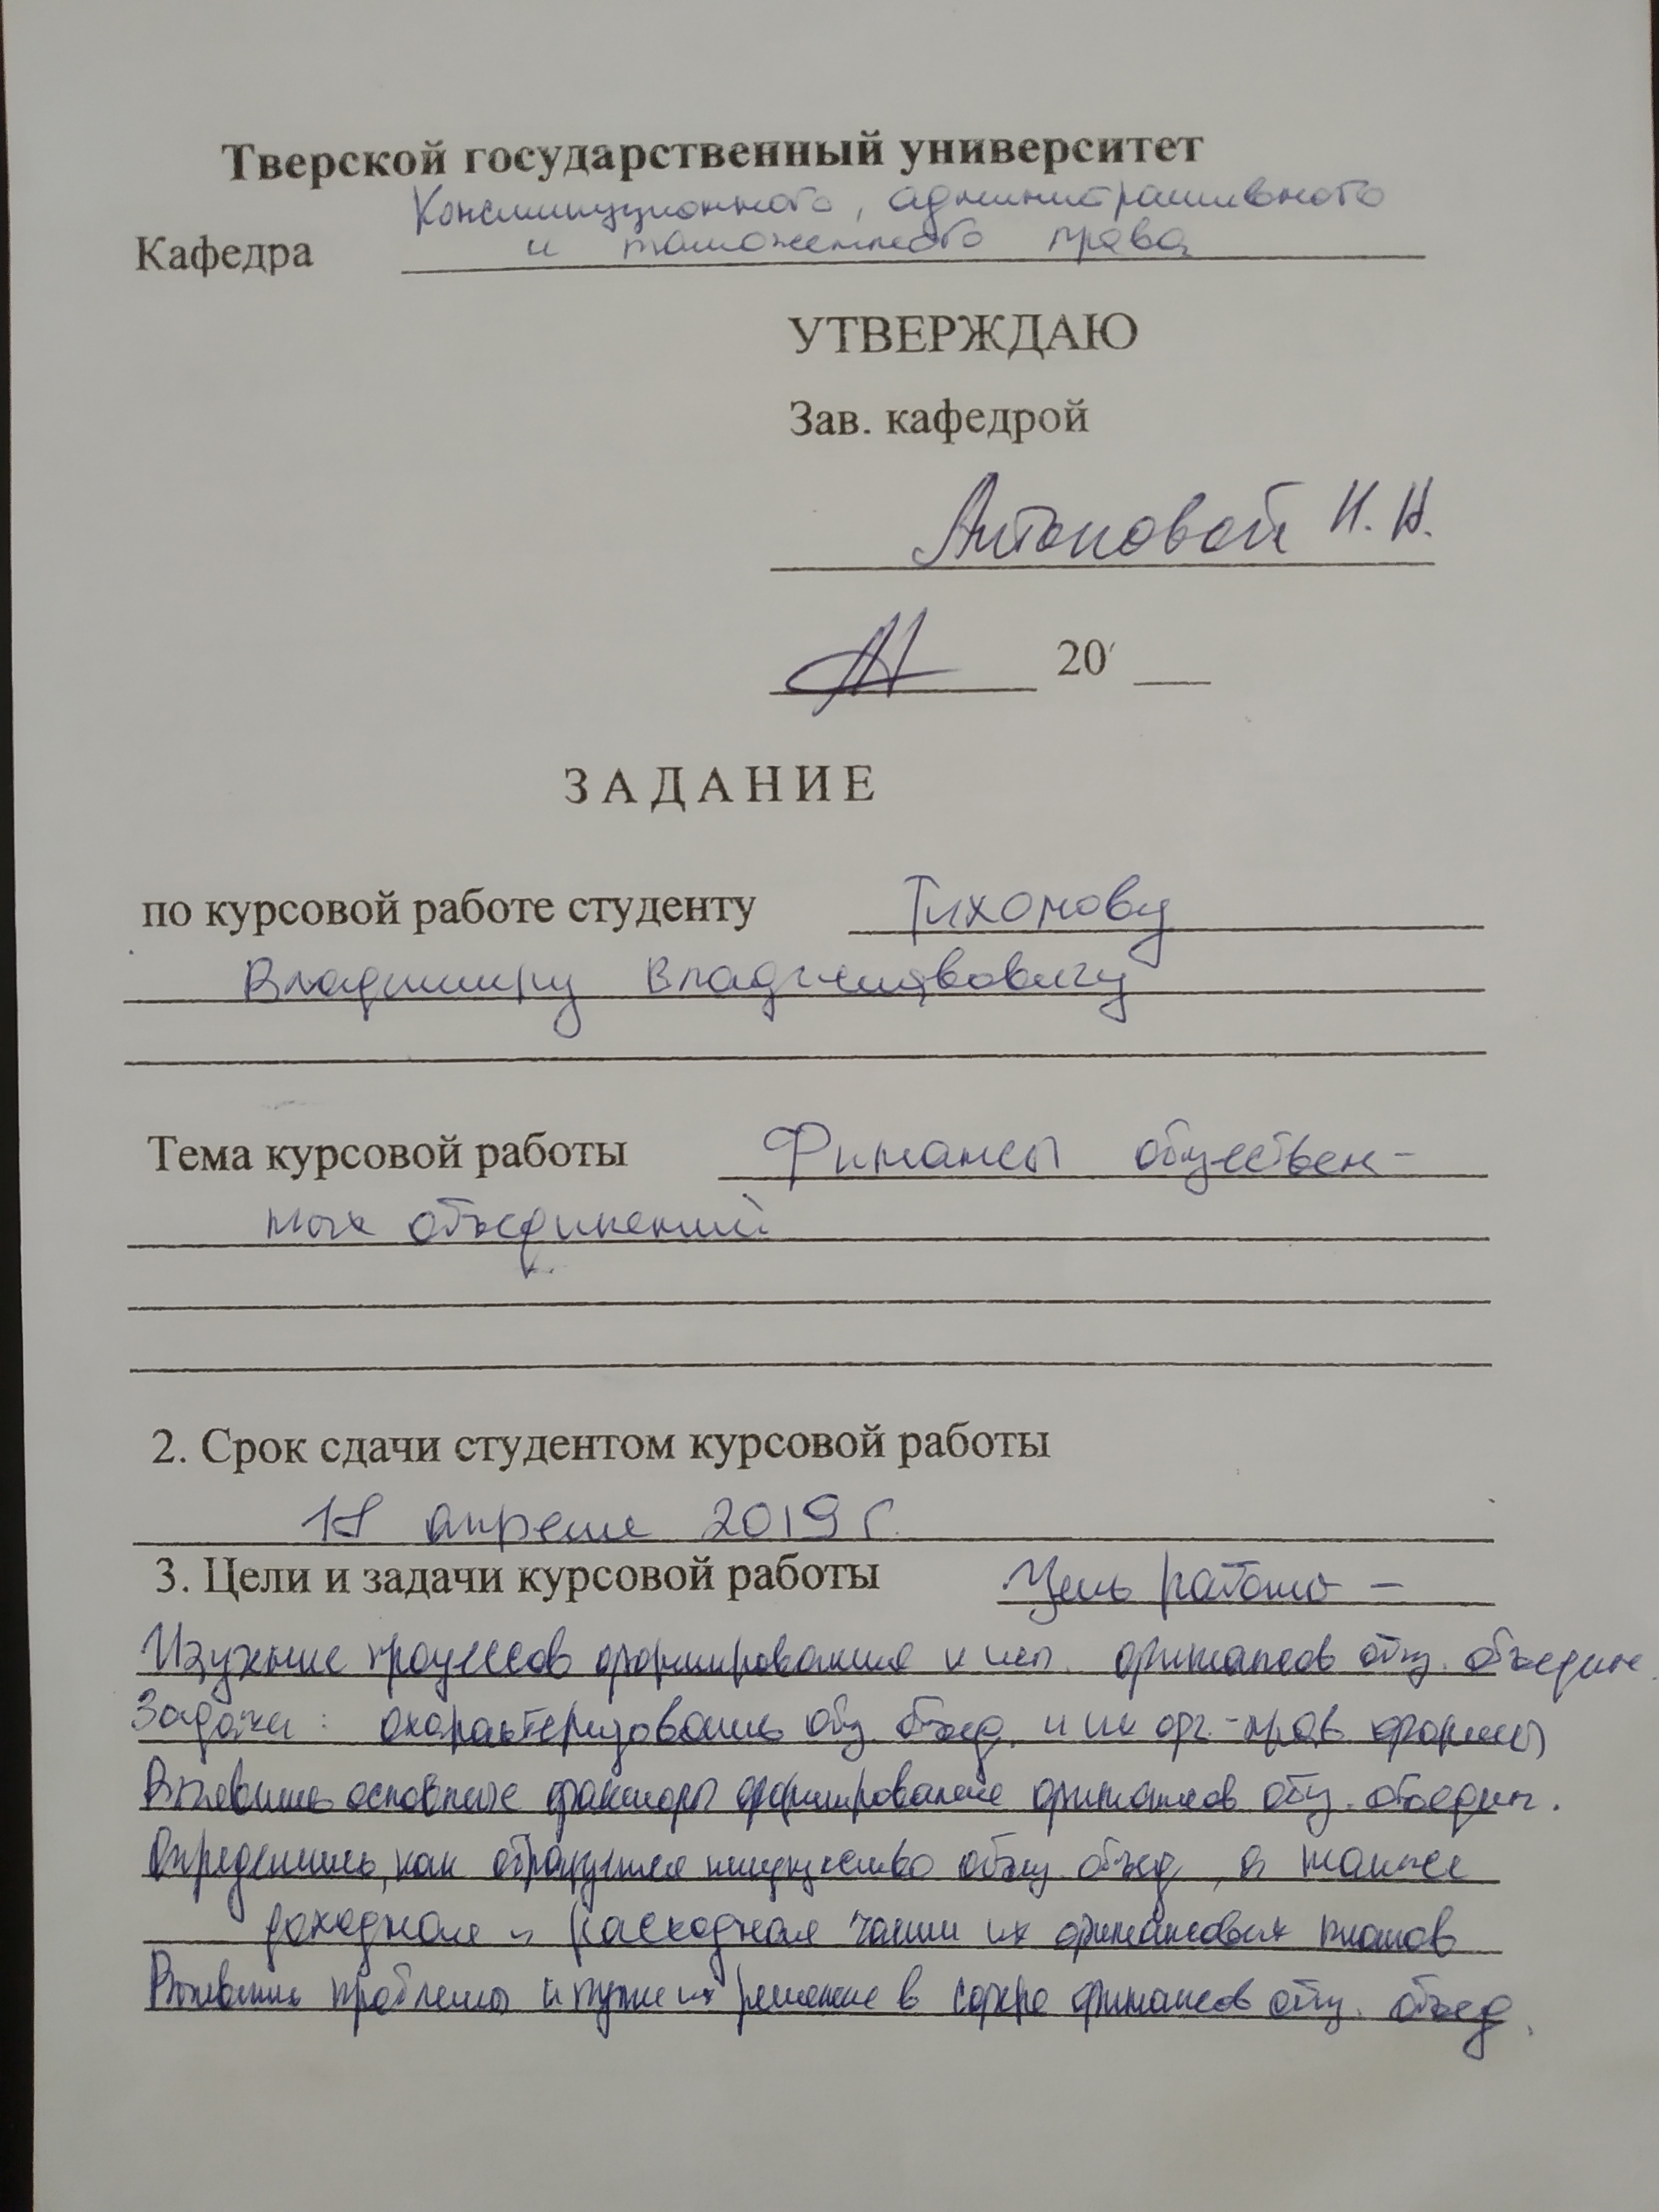 Тверской государственный университет
Конституционного, административного
Кафедра и таможенного права
УТВЕРЖДАЮ
Зав. кафедрой
Антоновой Н. А.
20
ЗАДАНИЕ
по курсовой работе студенту Тихонову
Владимиру
Тема курсовой работы Финансы обществен-
ных объединений
2. Срок сдачи студентом курсовой работы
апреля 2019 г.
3. Цели и задачи курсовой работы Цель работы -
Изучение процессов формирования и исп. финансов общ. объедине
Задачи: охарактеризовать общ. объед. и их орг.-прав формы
Выявить основные факторы формирования финансов общ. объедин.
Определить, как образуется имущество общ. объед, а также
доходная и расходная части их финансовых планов
Выявить проблемы и пути их решение в сфере финансов общ. объед.